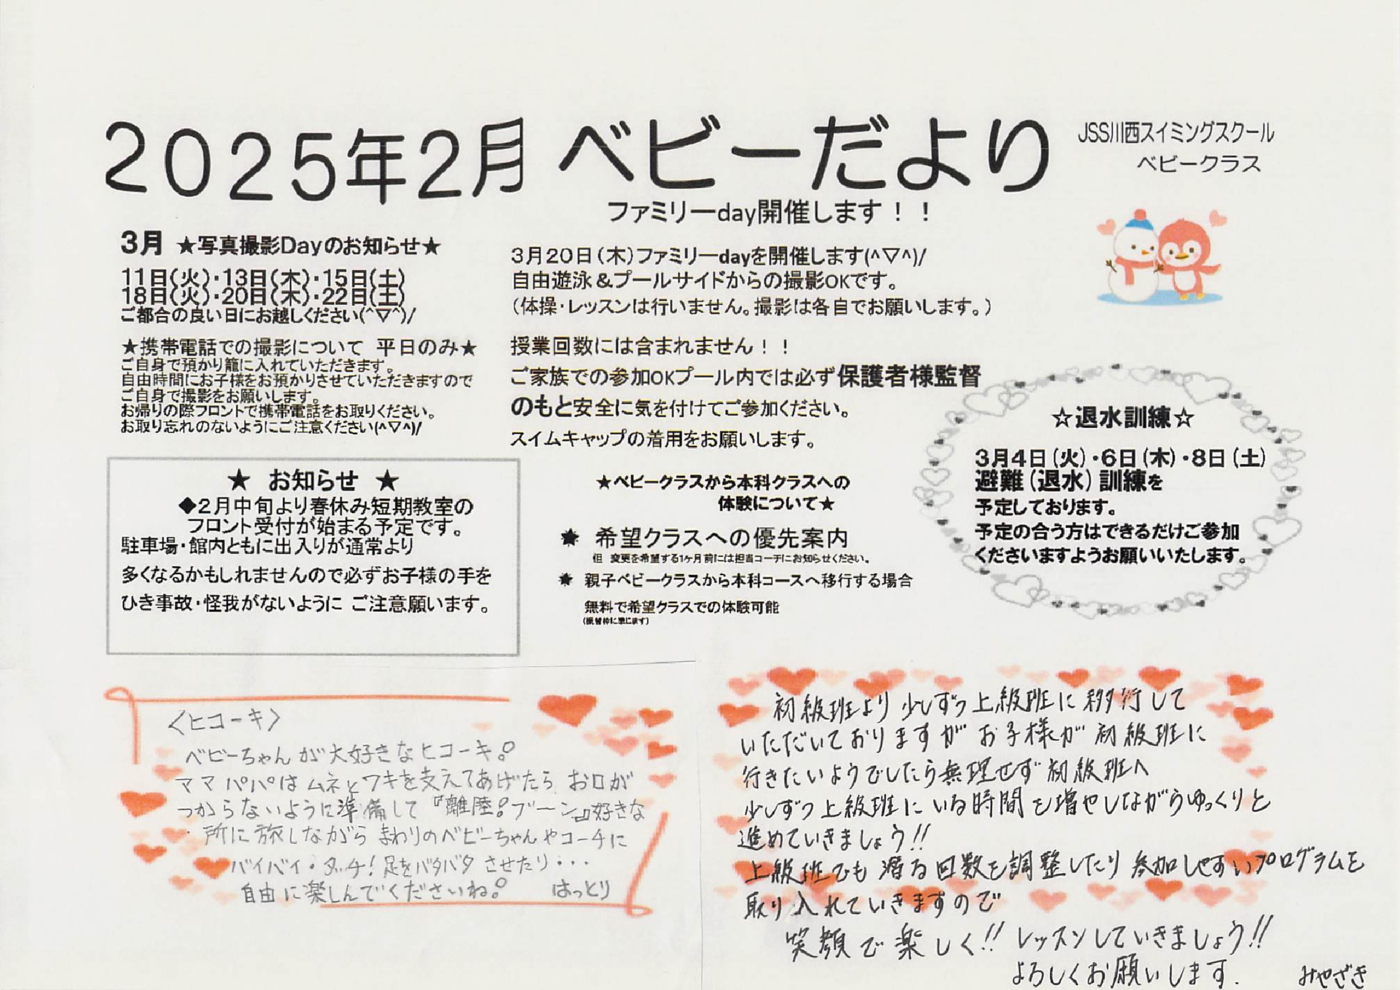 2025年2月 ベビーだより
JSS川西スイミングスクール
ベビークラス
ファミリーday開催します！！
3月 ★写真撮影Dayのお知らせ★
11日(火)・13日(木)・15日(土)
18日(火)・20日(木)・22日(土)
ご都合の良い日にお越しください(^▽^)/
★携帯電話での撮影について 平日のみ★
ご自身で預かり籠に入れていただきます。
自由時間にお子様をお預かりさせていただきますので
ご自身で撮影をお願いします。
お帰りの際フロントで携帯電話をお取りください。
お取り忘れのないようにご注意ください(^▽^)/
★ お知らせ ★
◆2月中旬より春休み短期教室の
フロント受付が始まる予定です。
駐車場・館内ともに出入りが通常より
多くなるかもしれませんので必ずお子様の手を
ひき事故・怪我がないように ご注意願います。
3月20日(木)ファミリーdayを開催します(^▽^)/
自由遊泳＆プールサイドからの撮影OKです。
(体操・レッスンは行いません。撮影は各自でお願いします。)
授業回数には含まれません！！
ご家族での参加OKプール内では必ず保護者様監督
のもと安全に気を付けてご参加ください。
スイムキャップの着用をお願いします。
★ベビークラスから本科クラスへの
体験について★
✷ 希望クラスへの優先案内
但 変更を希望する1ヶ月前には担当コーチにお知らせください。
✷ 親子ベビークラスから本科コースへ移行する場合
無料で希望クラスでの体験可能
(振替枠に準じます)
☆退水訓練☆
3月4日(火)・6日(木)・8日(土)
避難(退水)訓練を
予定しております。
予定の合う方はできるだけご参加
くださいますようお願いいたします。
〈ヒコーキ〉
ベビーちゃんが大好きなヒコーキ!
ママパパはムネとワキを支えてあげたら お口が
つからないように準備して『離陸!ブーン』好きな
所に旅しながら まわりのベビーちゃんやコーチに
バイバイ・タッチ! 足をバタバタ させたり・・・
自由に楽しんでくださいね! はっとり
初級班より少しずつ上級班に移行して
いただいておりますが お子様が初級班に
行きたいようでしたら無理せず初級班へ
少しずつ上級班にいる時間を増やしながらゆっくりと
進めていきましょう!!
上級班でも潜る回数を調整したり 参加しやすいプログラムを
取り入れていきますので
笑顔で楽しく!! レッスンしていきましょう!!
よろしくお願いします.
みやざき